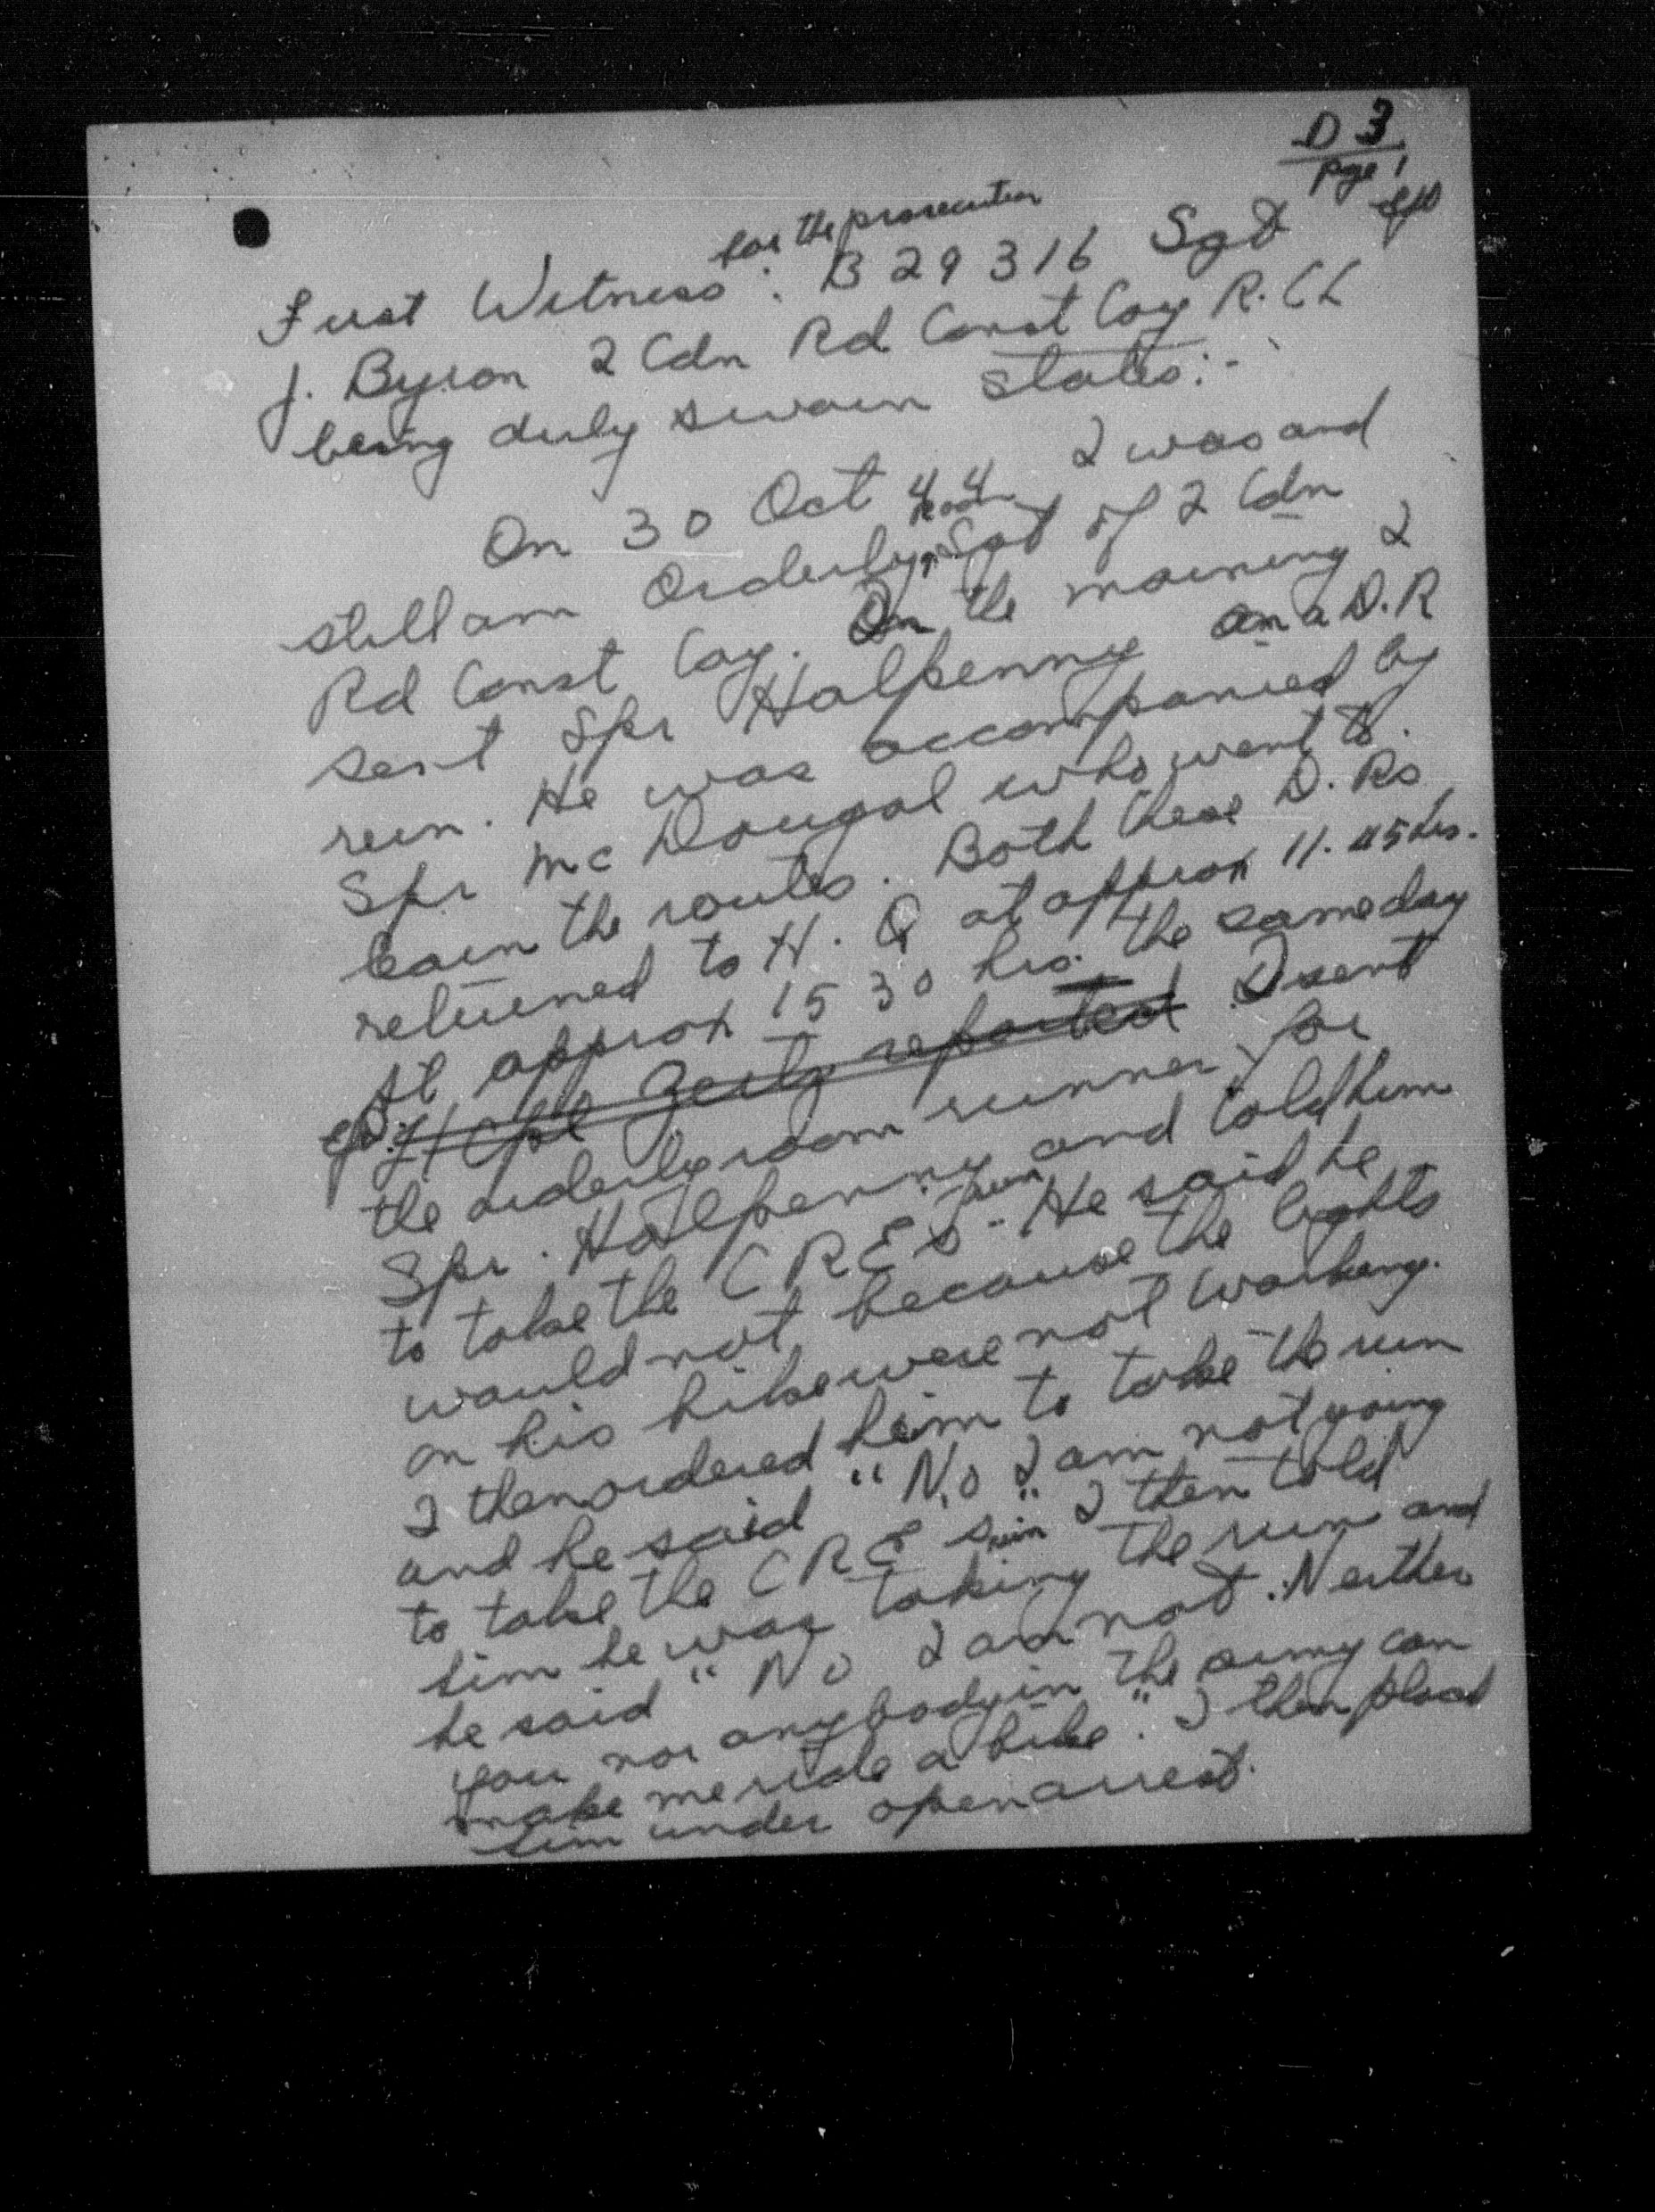 D 3
page 1
for the prosecution
First Witness: B 29316 Sgt
J. Byron 2 Cdn Rd Const Coy R.C.E
being duly sworn states:-
On 30 Oct 44 I was and
still am Orderly room Sgt of 2 Cdn
Rd Const Coy. On the morning I
sent Spr Halpenny on a D.R
run. He was accompanied by
Spr McDougal who went to
learn the routes. Both these D.Rs
returned to H.Q at approx 11.45 hrs.
At approx 1530 hrs. the same day
L/Cpl reported I sent
the orderly room runner for
Spr. Halpenny and told him
to take the C R E s run. He said he
would not because the lights
on his bike were not working.
I then ordered him to take the run
and he said "No I am not going
to take the C R E s run" I then told
him he was taking the run and
he said "No I am not. Neither
you nor anybody in the army can
make me ride a bike." I then placed
him under open arrest.